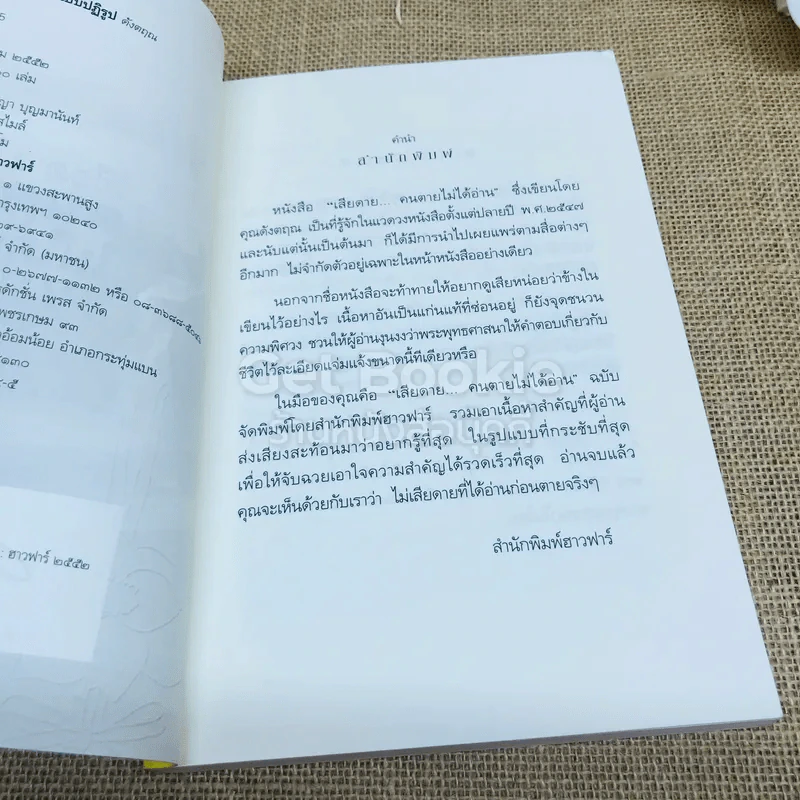 บบปฏิรูป ดังตฤณ
ม ๒๕๕๒
๐ เล่ม
ญา บุญมานันท์
สไมล์
ม
ฮาวฟาร์
๑ แขวงสะพานสูง
กรุงเทพฯ ๑๐๒๔๐
๐๙-๖๙๔๑
จำกัด (มหาชน)
๐-๒๖๗๗-๑๑๓๒ หรือ ๐๘-๓๖๘๘-๕๐
ดักชั่น เพรส จำกัด
เพชรเกษม ๙๓
อ้อมน้อย อำเภอกระทุ่มแบน
๑๓๐
-๕
: ฮาวฟาร์ ๒๕๕๒
คำนำ
สำนักพิมพ์
หนังสือ “เสียดาย... คนตายไม่ได้อ่าน” ซึ่งเขียนโดย
คุณดังตฤณ เป็นที่รู้จักในแวดวงหนังสือตั้งแต่ปลายปี พ.ศ.๒๕๔๗
และนับแต่นั้นเป็นต้นมา ก็ได้มีการนำไปเผยแพร่ตามสื่อต่างๆ
อีกมาก ไม่จำกัดตัวอยู่เฉพาะในหน้าหนังสืออย่างเดียว
นอกจากชื่อหนังสือจะท้าทายให้อยากดูเสียหน่อยว่าข้างใน
เขียนไว้อย่างไร เนื้อหาอันเป็นแก่นแท้ที่ซ่อนอยู่ ก็ยังจุดชนวน
ความพิศวง ชวนให้ผู้อ่านงุนงงว่าพระพุทธศาสนาให้คำตอบเกี่ยวกับ
ชีวิตไว้ละเอียดแจ่มแจ้งขนาดนี้ทีเดียวหรือ
ในมือของคุณคือ “เสียดาย... คนตายไม่ได้อ่าน” ฉบับ
จัดพิมพ์โดยสำนักพิมพ์ฮาวฟาร์ รวมเอาเนื้อหาสำคัญที่ผู้อ่าน
ส่งเสียงสะท้อนมาว่าอยากรู้ที่สุด ในรูปแบบที่กระชับที่สุด
เพื่อให้จับฉวยเอาใจความสำคัญได้รวดเร็วที่สุด อ่านจบแล้ว
คุณจะเห็นด้วยกับเราว่า ไม่เสียดายที่ได้อ่านก่อนตายจริงๆ
สำนักพิมพ์ฮาวฟาร์
Get Bookie
ร้านหนังสือบุคกี้